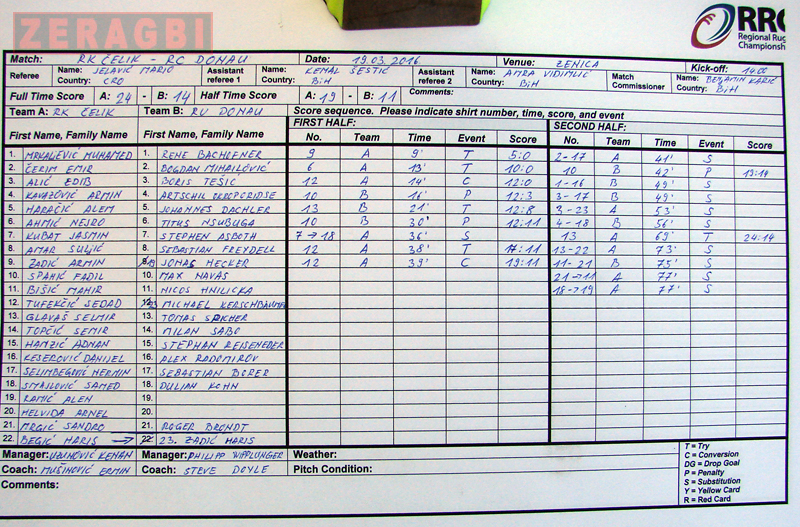 ZERAGBI
RRC
Regional Rug
Championsh
Match: RK ČELIK - RC DONAU Date: 19.03.2016 Venue: ZENICA Kick-off: 14:00
Referee Name: JELAVIĆ MARIO Country: CRO Assistant referee 1 Name: KEMAL ŠESTIĆ Country: BiH Assistant referee 2 Name: AMRA VIDIMLIĆ Country: BiH Match Commissioner Name: BENJAMIN KARIĆ Country: BiH
Full Time Score A: 24 - B: 14 Half Time Score A: 19 - B: 11 Comments:
Team A: RK ČELIK Team B: RU DONAU Score sequence. Please indicate shirt number, time, score, and event
FIRST HALF: SECOND HALF:
First Name, Family Name First Name, Family Name No. Team Time Event Score No. Team Time Event Score
1. MRKALEVIĆ MUHAMED 1. RENE BACHOFNER 9 A 9' T 5:0 2-17 A 41' S
2. ČERIM EMIR 2. BOGDAN MIHAILOVIĆ 6 A 13' T 10:0 10 B 42' P 19:14
3. ALIĆ EDIB 3. BORIS TEŠIĆ 12 A 14' C 12:0 1-16 B 49' S
4. KAVAZOVIĆ ARMIN 4. ARTSCHIL OKROPORIDSE 10 B 16' P 12:3 3-17 B 49' S
5. HARAČIĆ ALEM 5. JOHANNES DACHLER 13 B 21' T 12:8 3-23 A 53' S
6. AHMIĆ NEJRO 6. TITUS NSUBUGA 10 B 30' P 12:11 4-18 B 56' S
7. KUBAT JASMIN 7. STEPHEN ASBOTH 7→18 A 36' S 13 A 69' T 24:14
8. AMAR SULJIĆ 8. SEBASTIAN FREYDELL 12 A 38' T 17:11 13-22 A 73' S
9. ZADIĆ ARMIN JONAS HECKER 12 A 39' C 19:11 11-21 B 75' S
10. SPAHIĆ FADIL 10. MAX NAVAS 21→11 A 77' S
11. BIŠIĆ MAHIR 11. NICOS HNILICKA 18→19 A 77' S
12. TUFEKČIĆ SEDAD MICHAEL KERSCHBAUMER
13. GLAVAŠ SELMIR 13. TOMAS SPICHER
14. TOPČIĆ SEMIR 14. MILAN SABO
15. HAMZIĆ ADNAN 15. STEPHAN REISENEDER
16. KESEROVIĆ DANIJEL 16. ALEX RADOMIROV
17. SELIMBEGOVIĆ NERMIN 17. SEBASTIAN BÜRER
18. SMAJLOVIĆ SAMED 18. DULIAN KOHN
19. RAMIĆ ALEN 19.
20. HELVIDA ARNEL 20.
21. MRGIĆ SANDRO 21. ROGER BRONDT
22. BEGIĆ HARIS → 22. 23. ZADIĆ HARIS
Manager: UZUNOVIĆ KENAN Manager: PHILIPP WIPPLUNGER Weather:
Coach: MUŠINOVIĆ ERMIN Coach: STEVE DOYLE Pitch Condition:
Comments:
T = Try
C = Conversion
DG = Drop Goal
P = Penalty
S = Substitution
Y = Yellow Card
R = Red Card